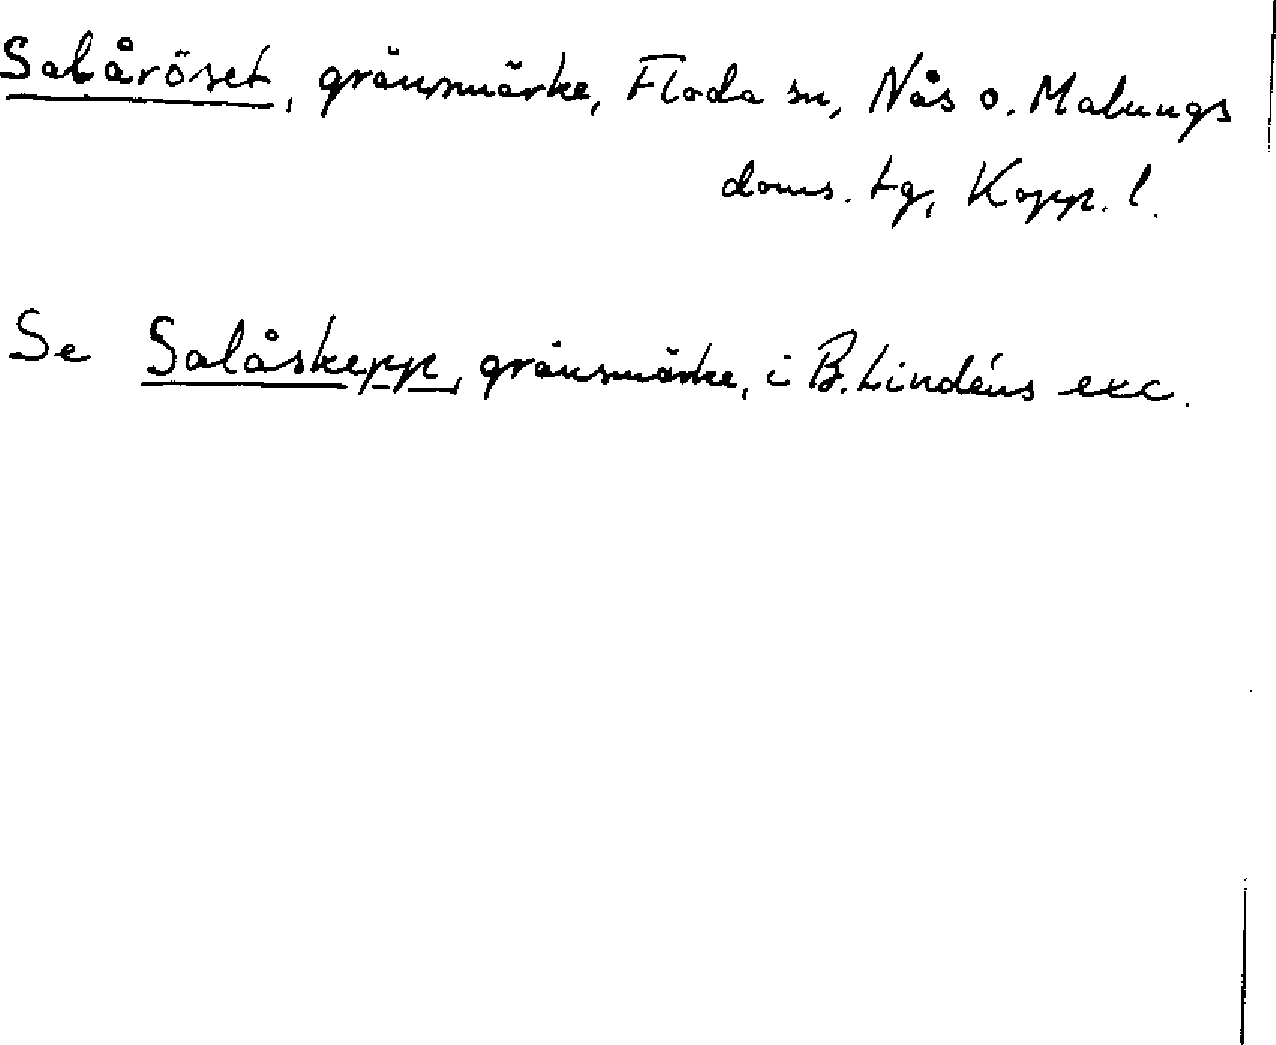 Salåröset, gränsmärke, Floda sn, Nås o. Malungs
doms. tg, Kopp. l.
Se Salåskepp, gränsmärke, i B. Lindéns exc.